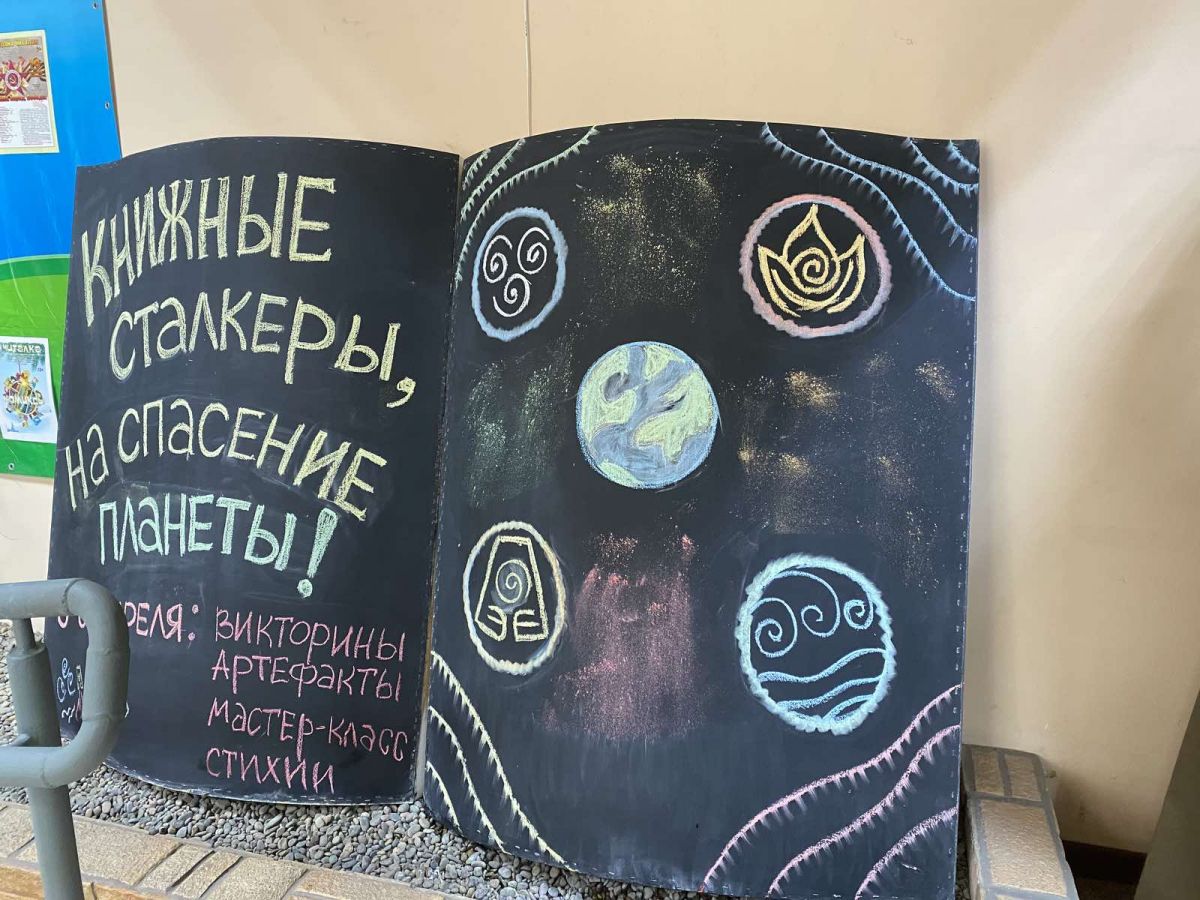 КНИЖНЫЕ
СТАЛКЕРЫ,
НА СПАСЕНИЕ
ПЛАНЕТЫ!
ВИКТОРИНЫ
АРТЕФАКТЫ
МАСТЕР-КЛАСС
СТИХИИ